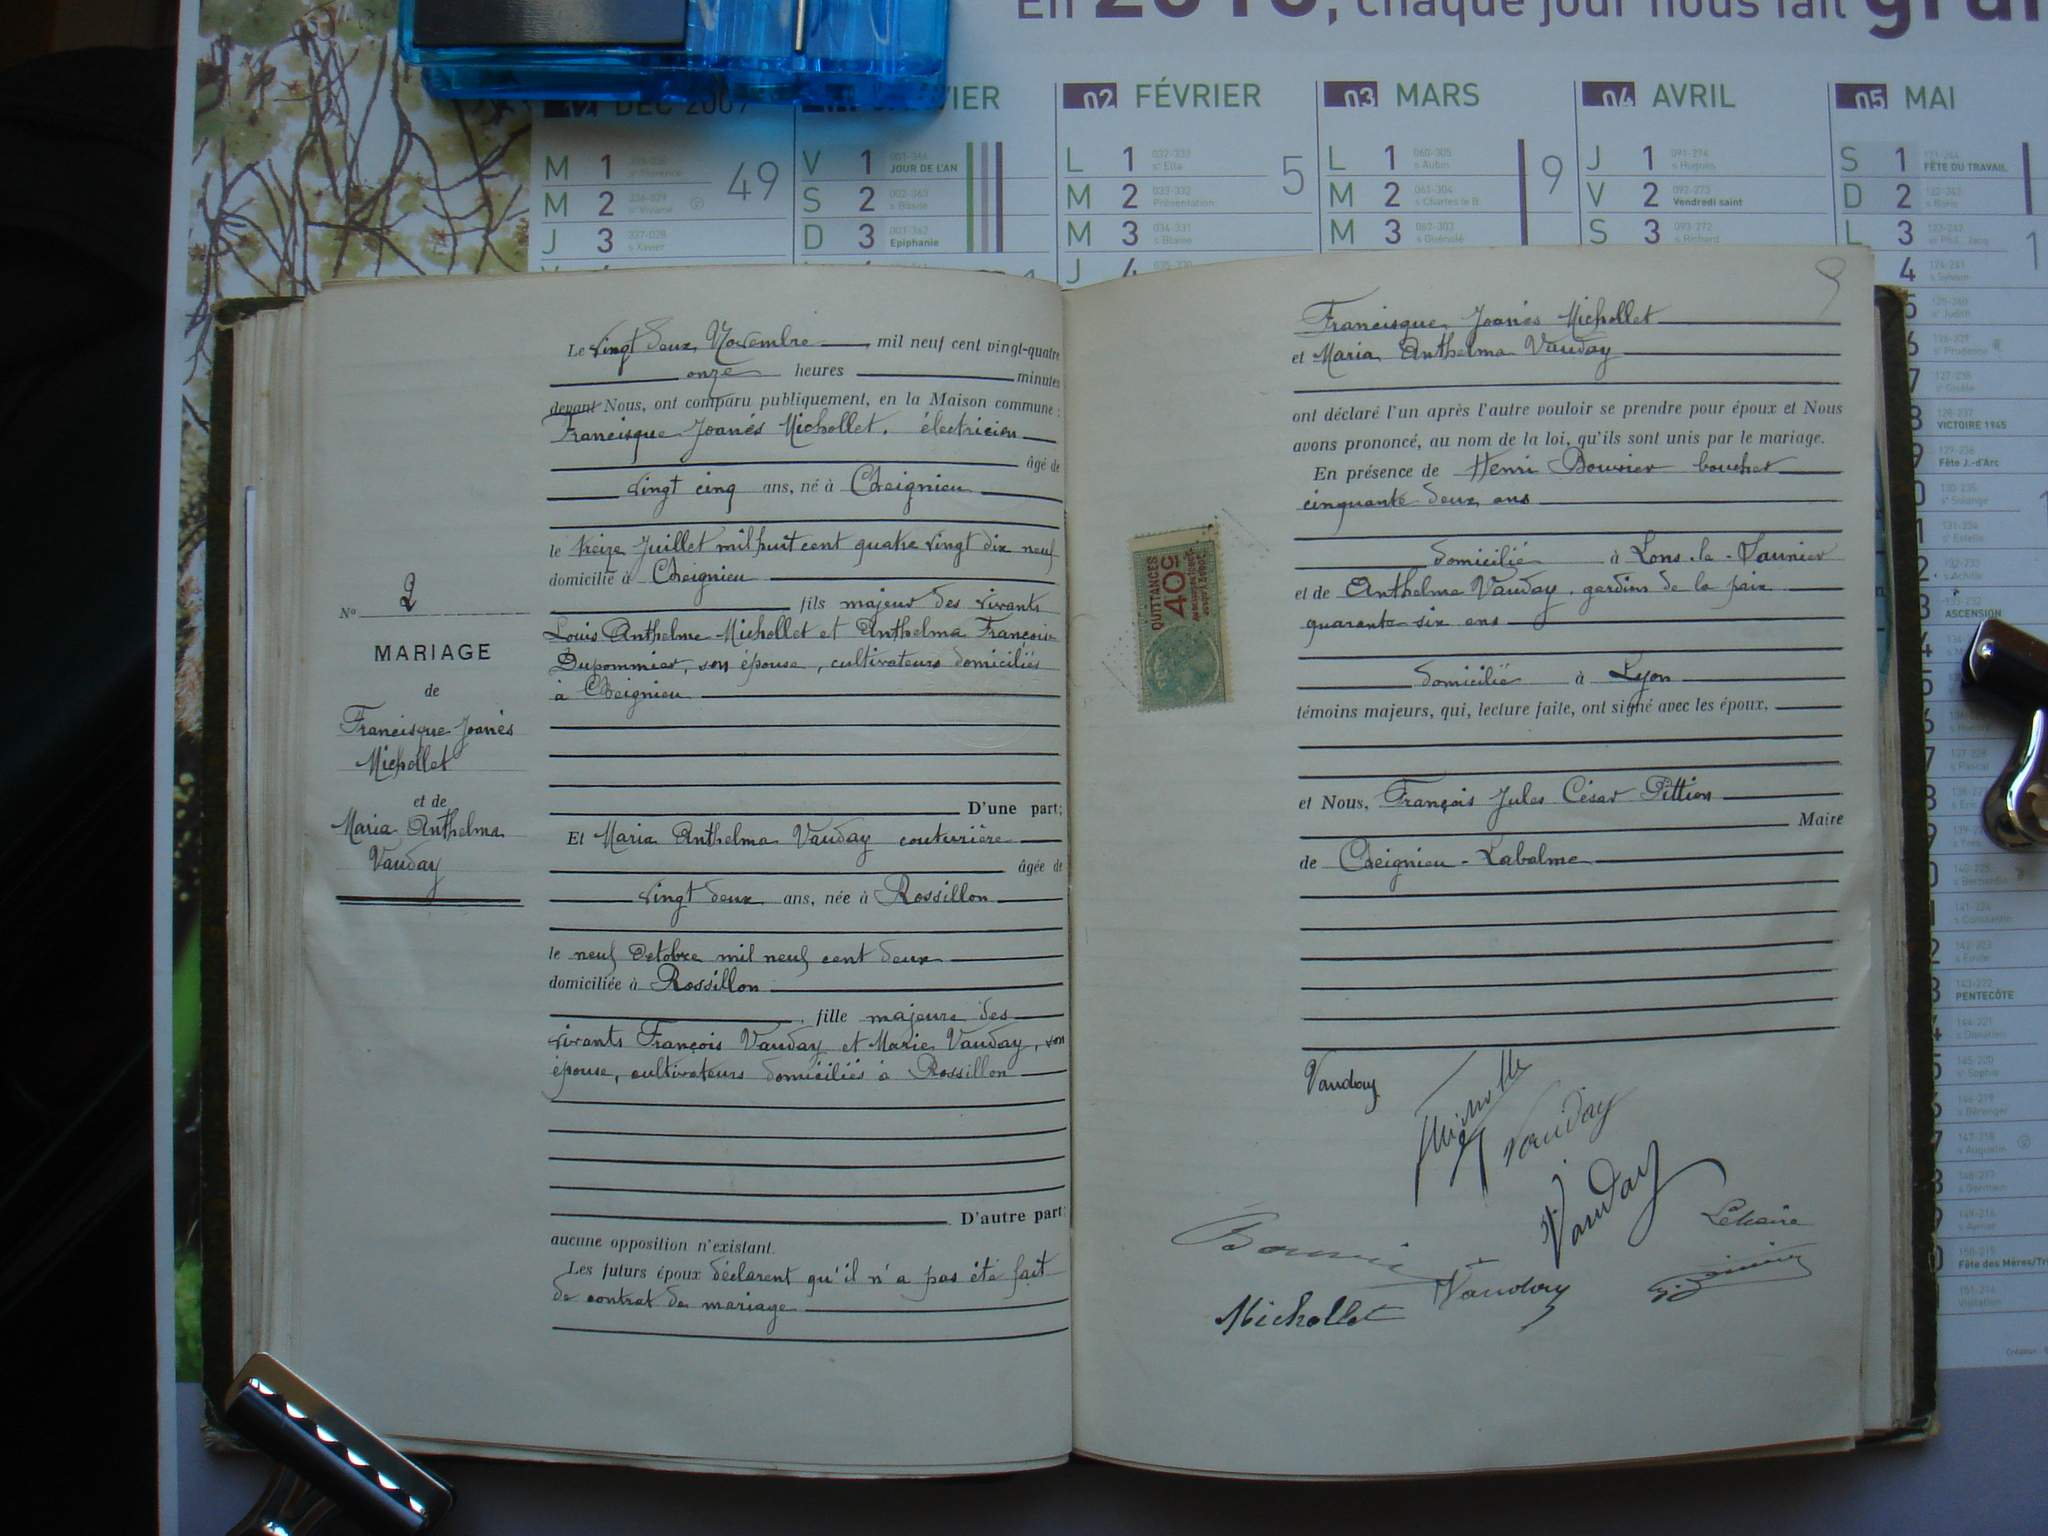 En 2010, chaque jour nous fait gran
DÉC 2009
VIER
02 FÉVRIER
03 MARS
04 AVRIL
05 MAI
M 1 49
V 1 JOUR DE L'AN
L 1 5
L 1 s Aubin 9
J 1 s Hugues
S 1 FÊTE DU TRAVAIL
M 2
S 2
M 2 Présentation
M 2 s Charles le B.
V 2 Vendredi saint
D 2
J 3
D 3 Epiphanie
M 3
M 3
S 3
L 3
J 4
4
5
6
7
8 VICTOIRE 1945
9 Fête J.-d'Arc
ASCENSION
PENTECÔTE
Fête des Mères/Tri
N° 2
MARIAGE
de
Francisque Joanès
Michollet
et de
Maria Anthelma
Vauday
Le vingt deux Novembre mil neuf cent vingt-quatre
onze heures minutes
devant Nous, ont comparu publiquement, en la Maison commune :
Francisque Joanès Michollet, électricien
âgé de
vingt cinq ans, né à Cheignieu
le treize Juillet mil huit cent quatre vingt dix neuf
domicilié à Cheignieu
fils majeur des vivants
Louis Anthelme Michollet et Anthelma François
Dupommier, son épouse, cultivateurs domiciliés
à Cheignieu
D'une part;
Et Maria Anthelma Vauday couturière
âgée de
vingt deux ans, née à Rossillon
le neuf Octobre mil neuf cent deux
domiciliée à Rossillon
fille majeure des
vivants François Vauday et Marie Vauday, son
épouse, cultivateurs domiciliés à Rossillon
D'autre part;
aucune opposition n'existant.
Les futurs époux déclarent qu'il n'a pas été fait
de contrat de mariage
9
Francisque Joanès Michollet
et Maria Anthelma Vauday
ont déclaré l'un après l'autre vouloir se prendre pour époux et Nous
avons prononcé, au nom de la loi, qu'ils sont unis par le mariage.
En présence de Henri Bouvier boucher
cinquante deux ans
domicilié à Lons-le-Saunier
et de Anthelme Vauday, gardien de la paix
quarante six ans
domicilié à Lyon
témoins majeurs, qui, lecture faite, ont signé avec les époux.
et Nous, François Jules César Pittion
Maire
de Cheignieu-Labalme
QUITTANCES
40c
Vauday
Michollet
Vauday
Vauday
Bouvier
Vauday
Michollet